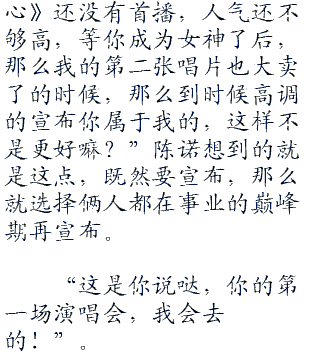 心》还没有首播，人气还不
够高，等你成为女神了后，
那么我的第二张唱片也大卖
了的时候，那么到时候高调
的宣布你属于我的，这样不
是更好嘛？”陈诺想到的就
是这点，既然要宣布，那么
就选择俩人都在事业的巅峰
期再宣布。
“这是你说哒，你的第
一场演唱会，我会去
的！”。